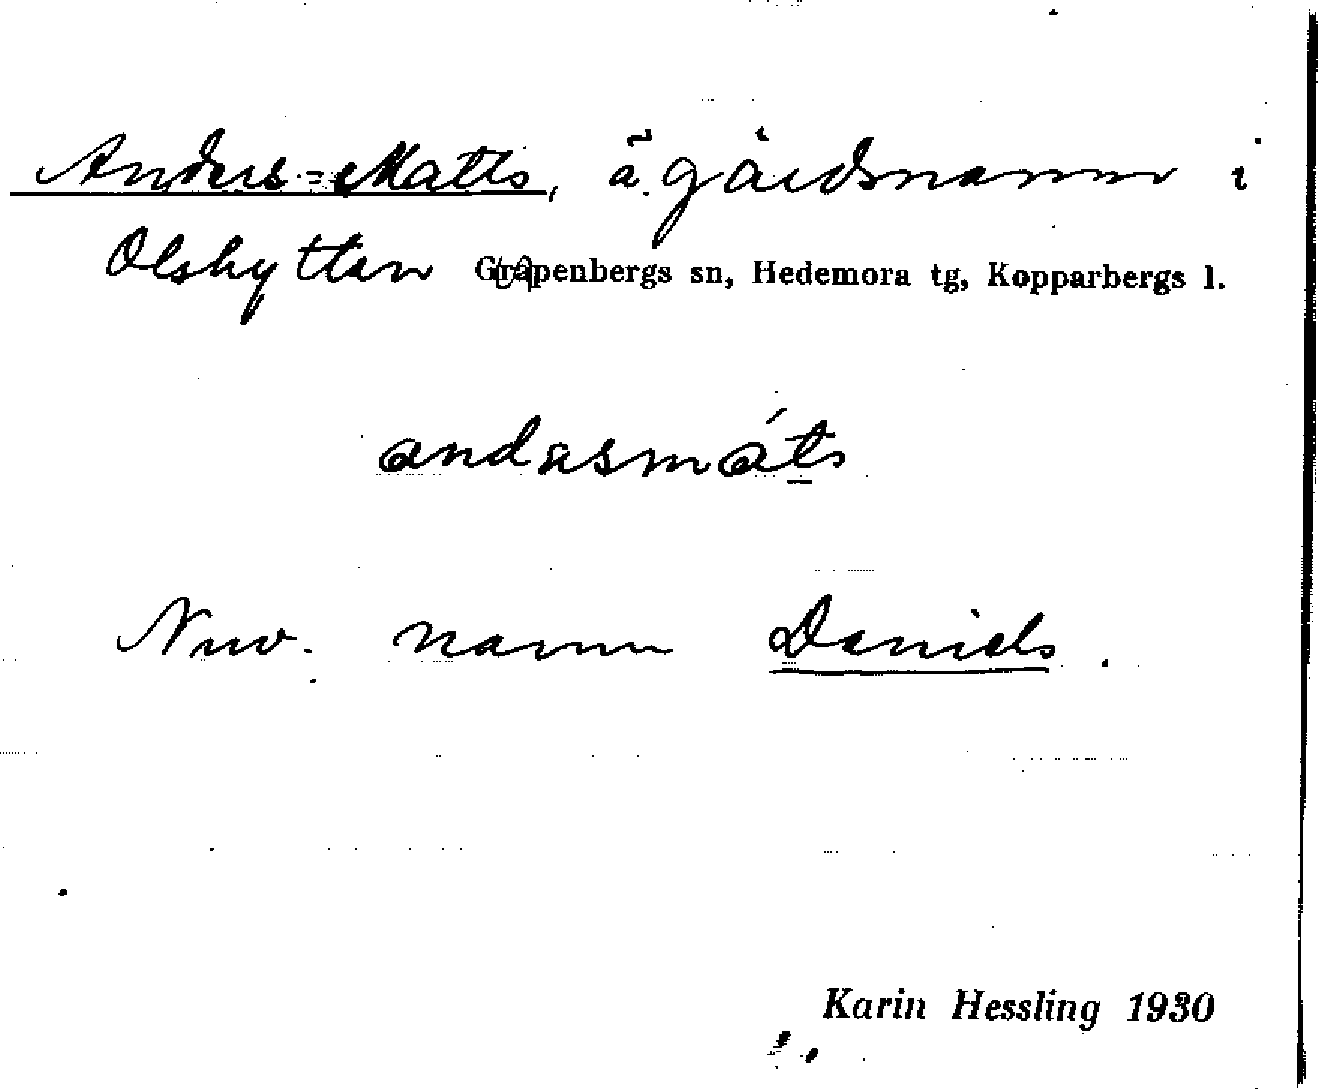 Anders-Matts, ä. gårdsnamn i
Olshyttan Garpenbergs sn, Hedemora tg, Kopparbergs l.
andasmáts
Nuv. namn Daniels.
Karin Hessling 1930